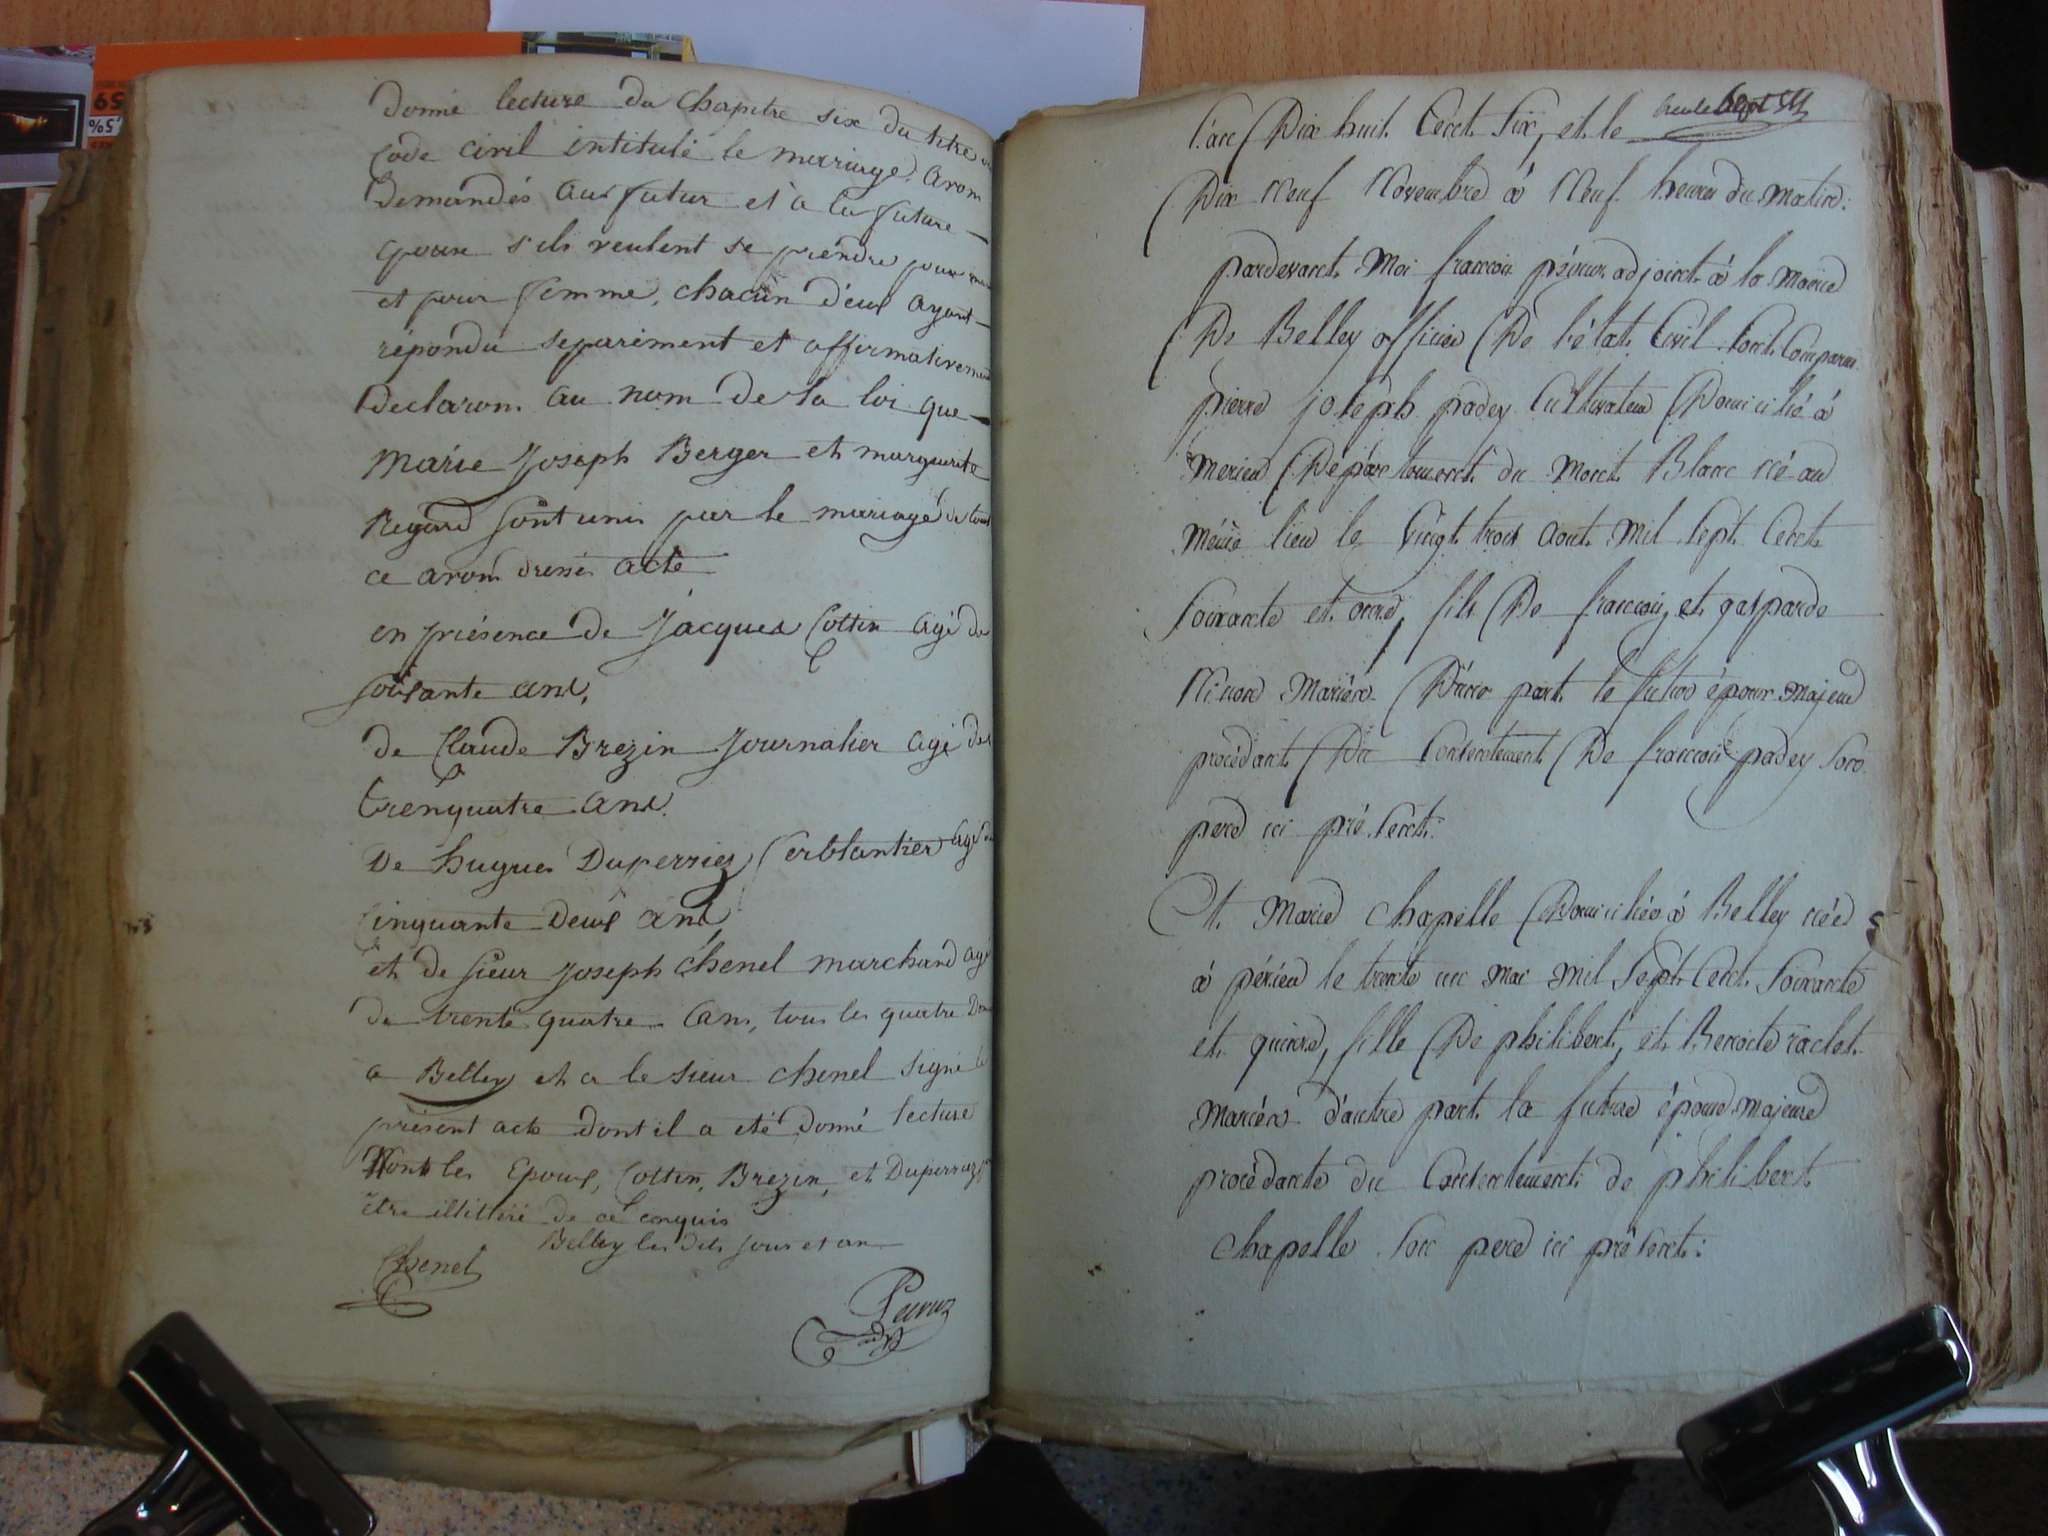 donné lecture du chapitre six du titre
Code civil intitulé le mariage. avons
demandés au futur et à la future
epoux s'ils veulent se prendre pour
et pour femme, chacun d'eux ayant
répondu séparément et affirmativement
declarons au nom de la loi que
marie Joseph Berger et marguerite
Regard sont unis par le mariage de tout
ce avons dressés acte
en présence de Jacques Cottin agé de
soixante ans,
de Claude Brezin Journalier agé de
trenquatre ans.
De hugues Duperrier ferblantier agé
Cinquante Deux ans
et de sieur Joseph Chenel marchand agé
de trente quatre ans, tous les quatre
a Belley et a le sieur chenel signé le
présent acte dont il a eté donné lecture
Non les Epoux, Cottin, Brezin, et
être illitteré de ce enquis
Belley les dits jour et an
Chenel
59
,5%
L'an Dix huit Cent Six, et le
Dix Neuf Novembre à Neuf heures du Matin:
pardevant Moi francois adjoint à la Mairie
De Belley officier De l'état Civil sont Comparu
pierre joseph padey Cultivateur Domicilié à
Département du Mont Blanc né au
même lieu le Vingt trois aout Mil Sept Cent
Soixante et onze, fils De francois, et gasparde
Mariés D'une part le futur époux Majeur
procédant Du Consentement De francois padey Son
pere ici présent:
Et Marie Chapelle Domiciliée à Belley née
à le trente un mai Mil Sept Cent Soixante
et quinze, fille De philibert, et Benoite
Mariés d'autre part la future épouse majeure
procédante du Consentement de philibert
Chapelle Son pere ici présent: